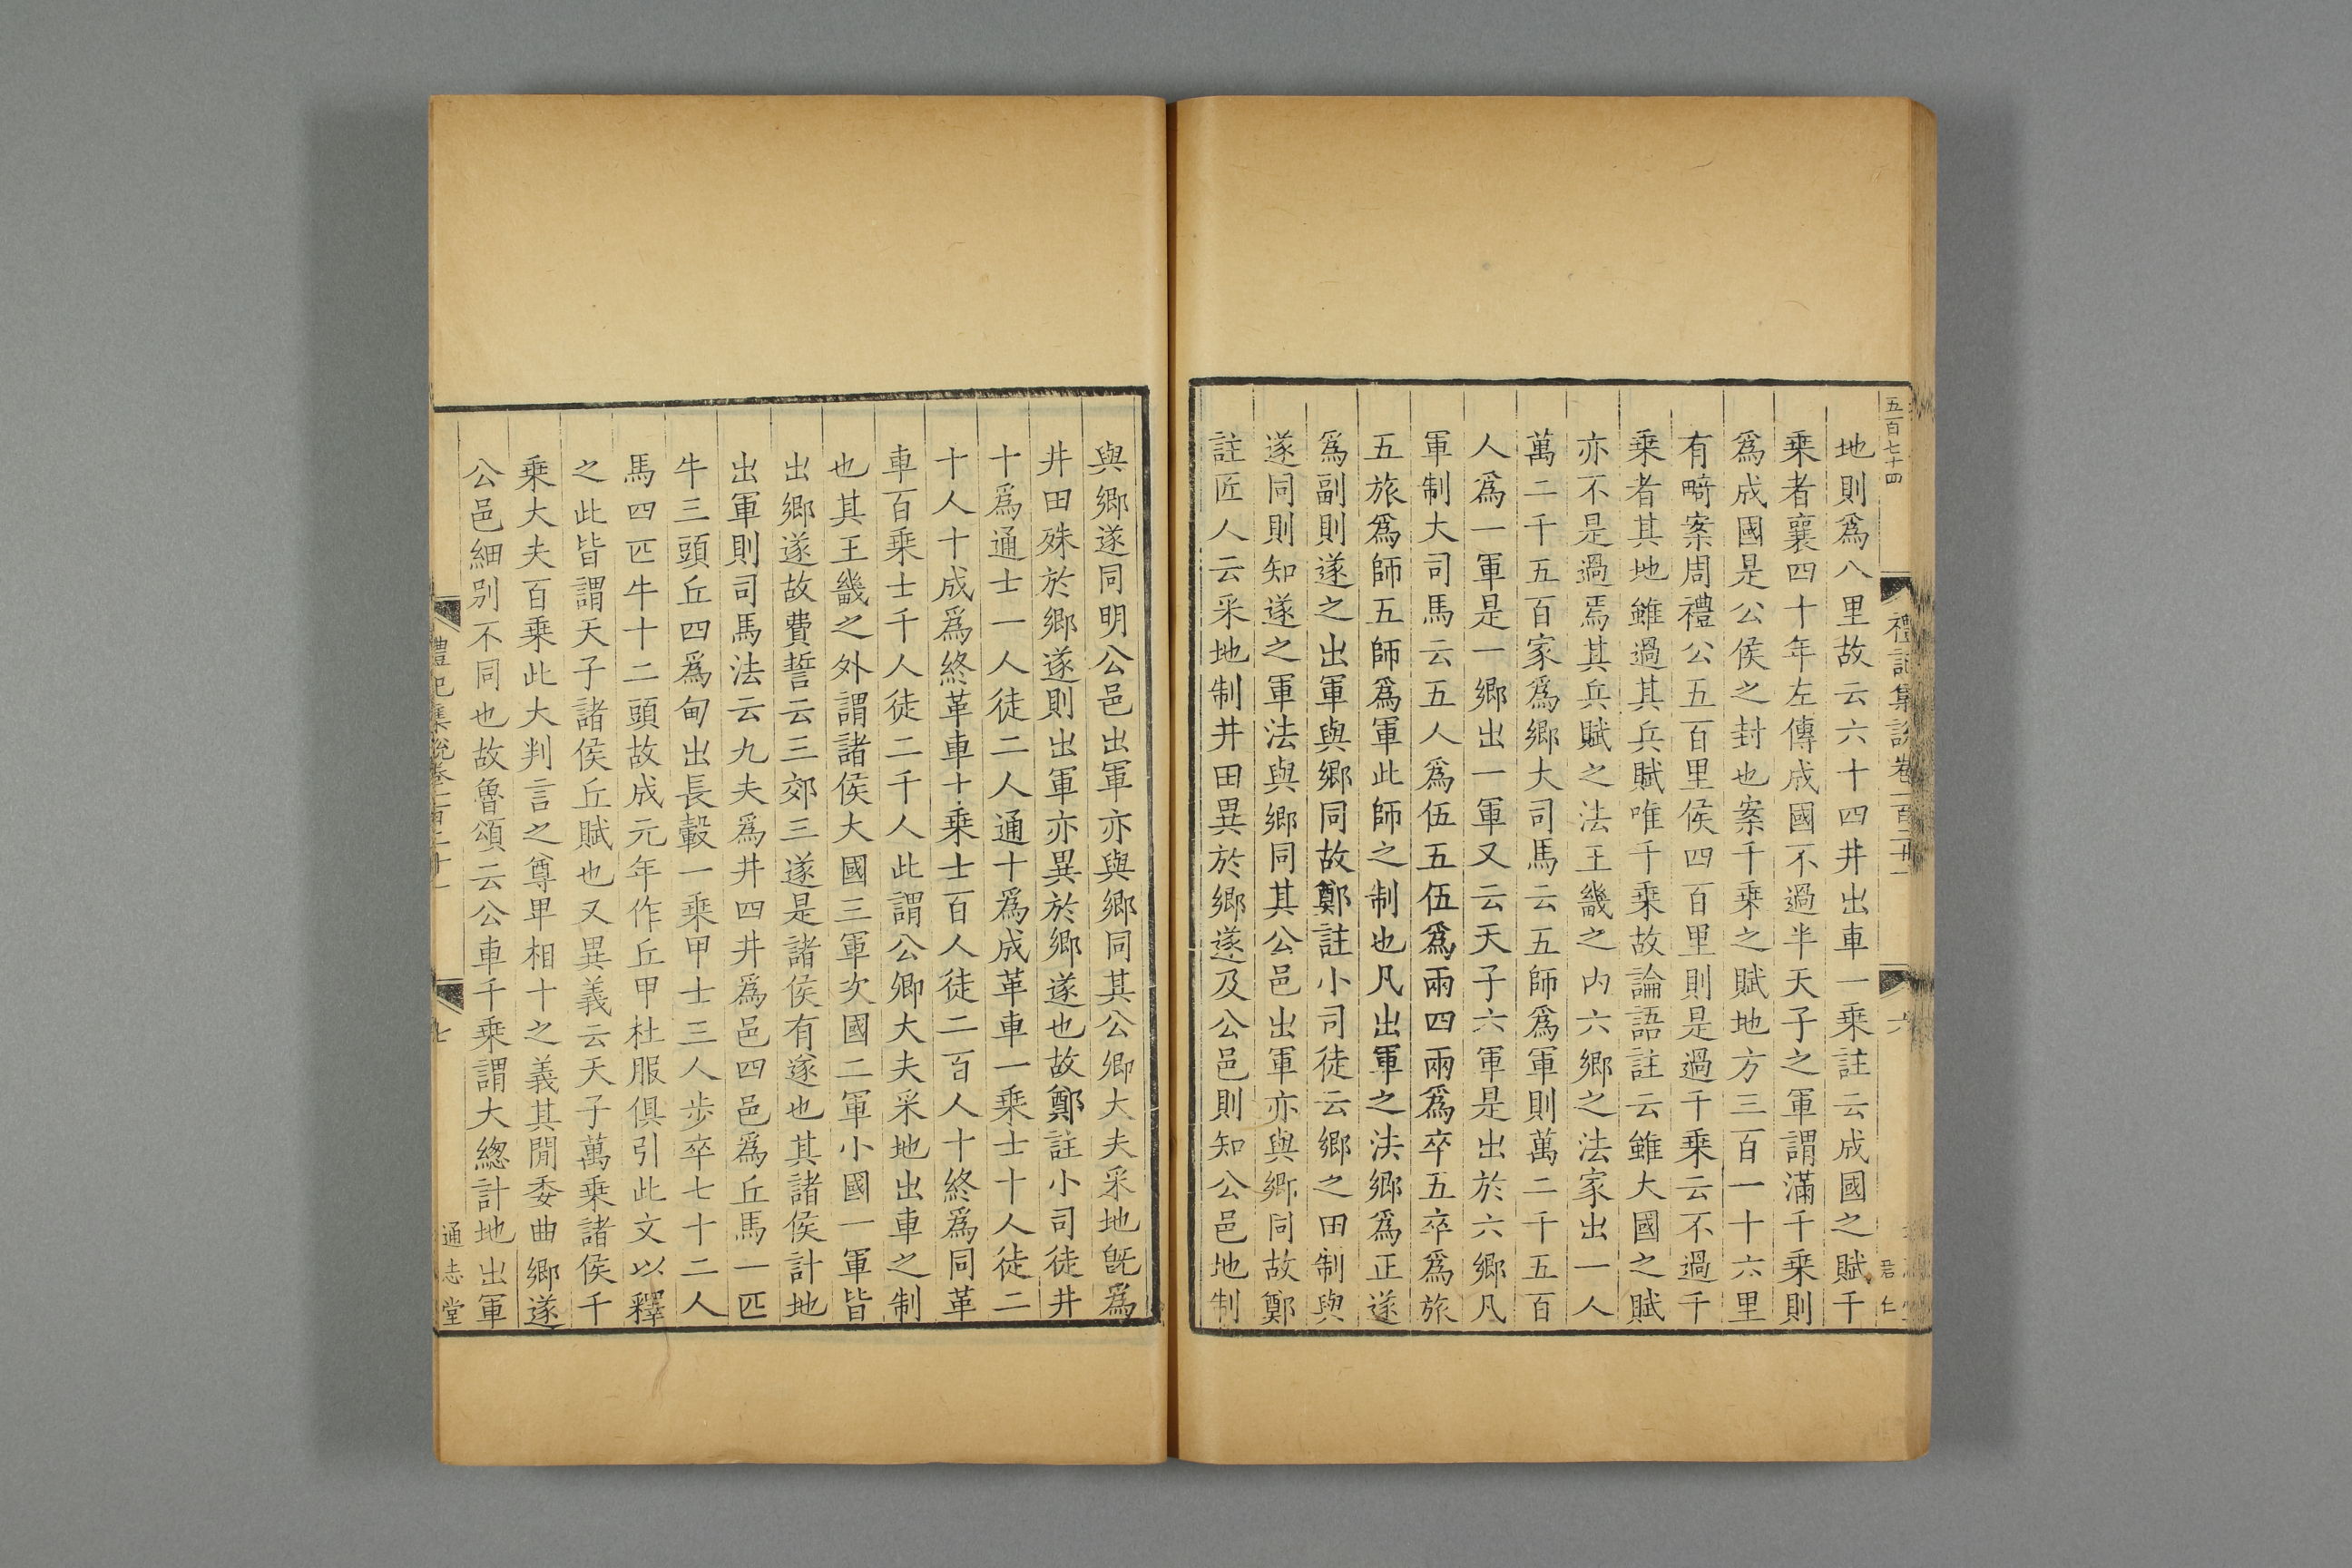 五百七十四
禮記集說卷一百二十一
六
君仁
地則爲八里故云六十四井出車一乗註云成國之賦千
乗者襄四十年左傳成國不過半天子之軍謂滿千乗則
爲成國是公侯之封也案千乗之賦地方三百一十六里
有畸案周禮公五百里侯四百里則是過千乗云不過千
乗者其地雖過其兵賦唯千乗故論語註云雖大國之賦
亦不是過焉其兵賦之法王畿之内六鄉之法家出一人
萬二千五百家爲鄉大司馬云五師爲軍則萬二千五百
人爲一軍是一鄉出一軍又云天子六軍是出於六鄉凡
軍制大司馬云五人爲伍五伍爲兩四兩爲卒五卒爲旅
五旅爲師五師爲軍此師之制也凡出軍之法鄉爲正遂
爲副則遂之出軍與鄉同故鄭註小司徒云鄉之田制與
遂同則知遂之軍法與鄉同其公邑出軍亦與鄉同故鄭
註匠人云采地制井田異於鄉遂及公邑則知公邑地制
與鄉遂同明公邑出軍亦與鄉同其公卿大夫采地旣爲
井田殊於鄉遂則出軍亦異於鄉遂也故鄭註小司徒井
十爲通士一人徒二人通十爲成革車一乗士十人徒二
十人十成爲終革車十乗士百人徒二百人十終爲同革
車百乗士千人徒二千人此謂公卿大夫采地出車之制
也其王畿之外謂諸侯大國三軍次國二軍小國一軍皆
出鄉遂故費誓云三郊三遂是諸侯有遂也其諸侯計地
出軍則司馬法云九夫爲井四井爲邑四邑爲丘馬一匹
牛三頭丘四爲甸出長轂一乗甲士三人歩卒七十二人
馬四匹牛十二頭故成元年作丘甲杜服俱引此文以釋
之此皆謂天子諸侯丘賦也又異義云天子萬乗諸侯千
乗大夫百乗此大判言之尊卑相十之義其閒委曲鄉遂
公邑細别不同也故魯頌云公車千乗謂大緫計地出軍
禮記集說卷一百二十一
七
通志堂